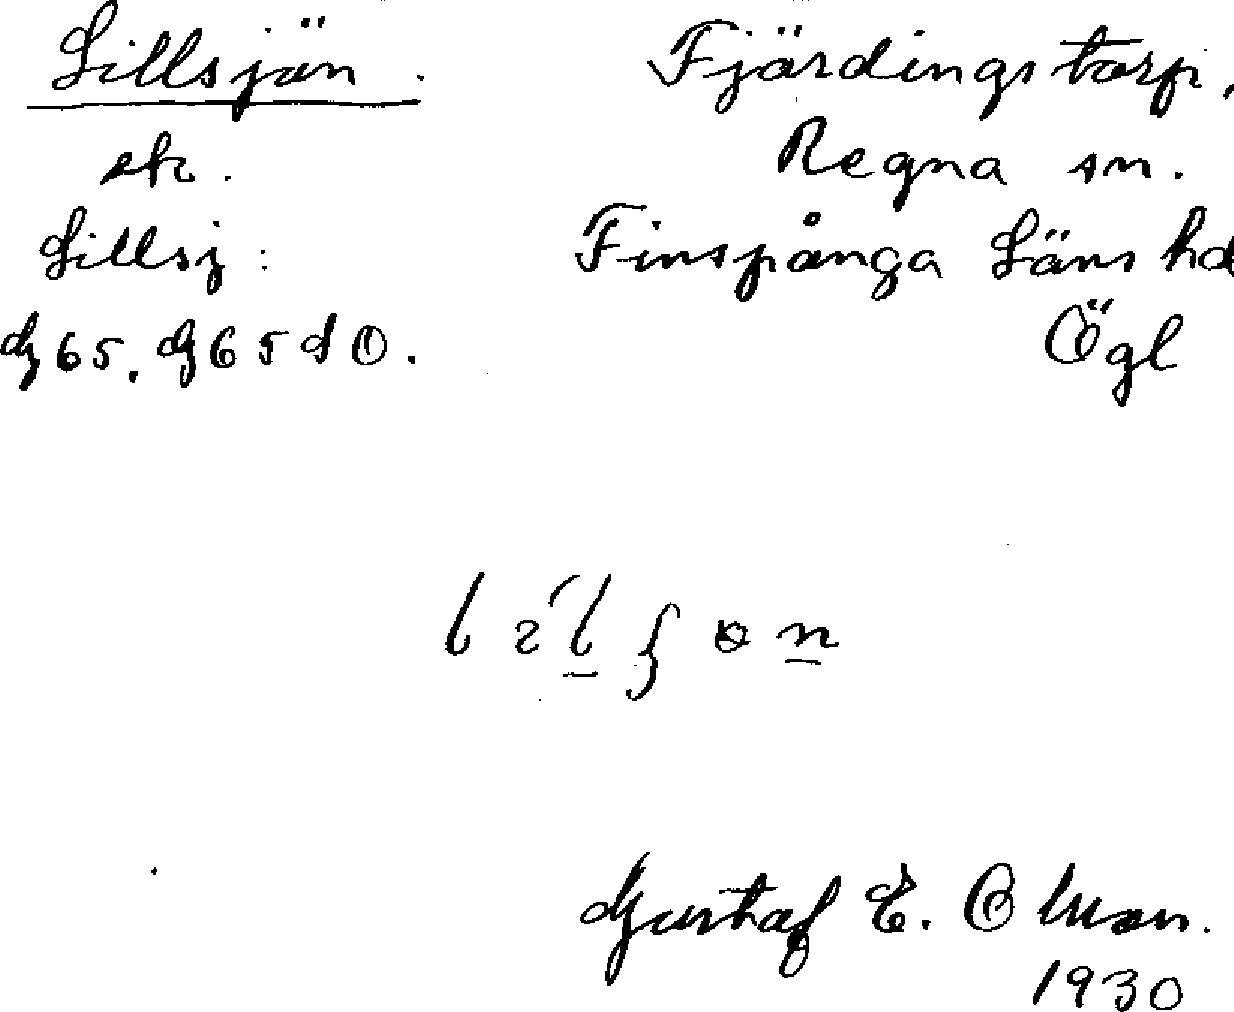 Lillsjön. Fjärdingstorp,
ek. Regna sn.
Lillsj: Finspånga Läns hd
G65. G65dO. Ögl
Gustaf E. Olsson.
1930